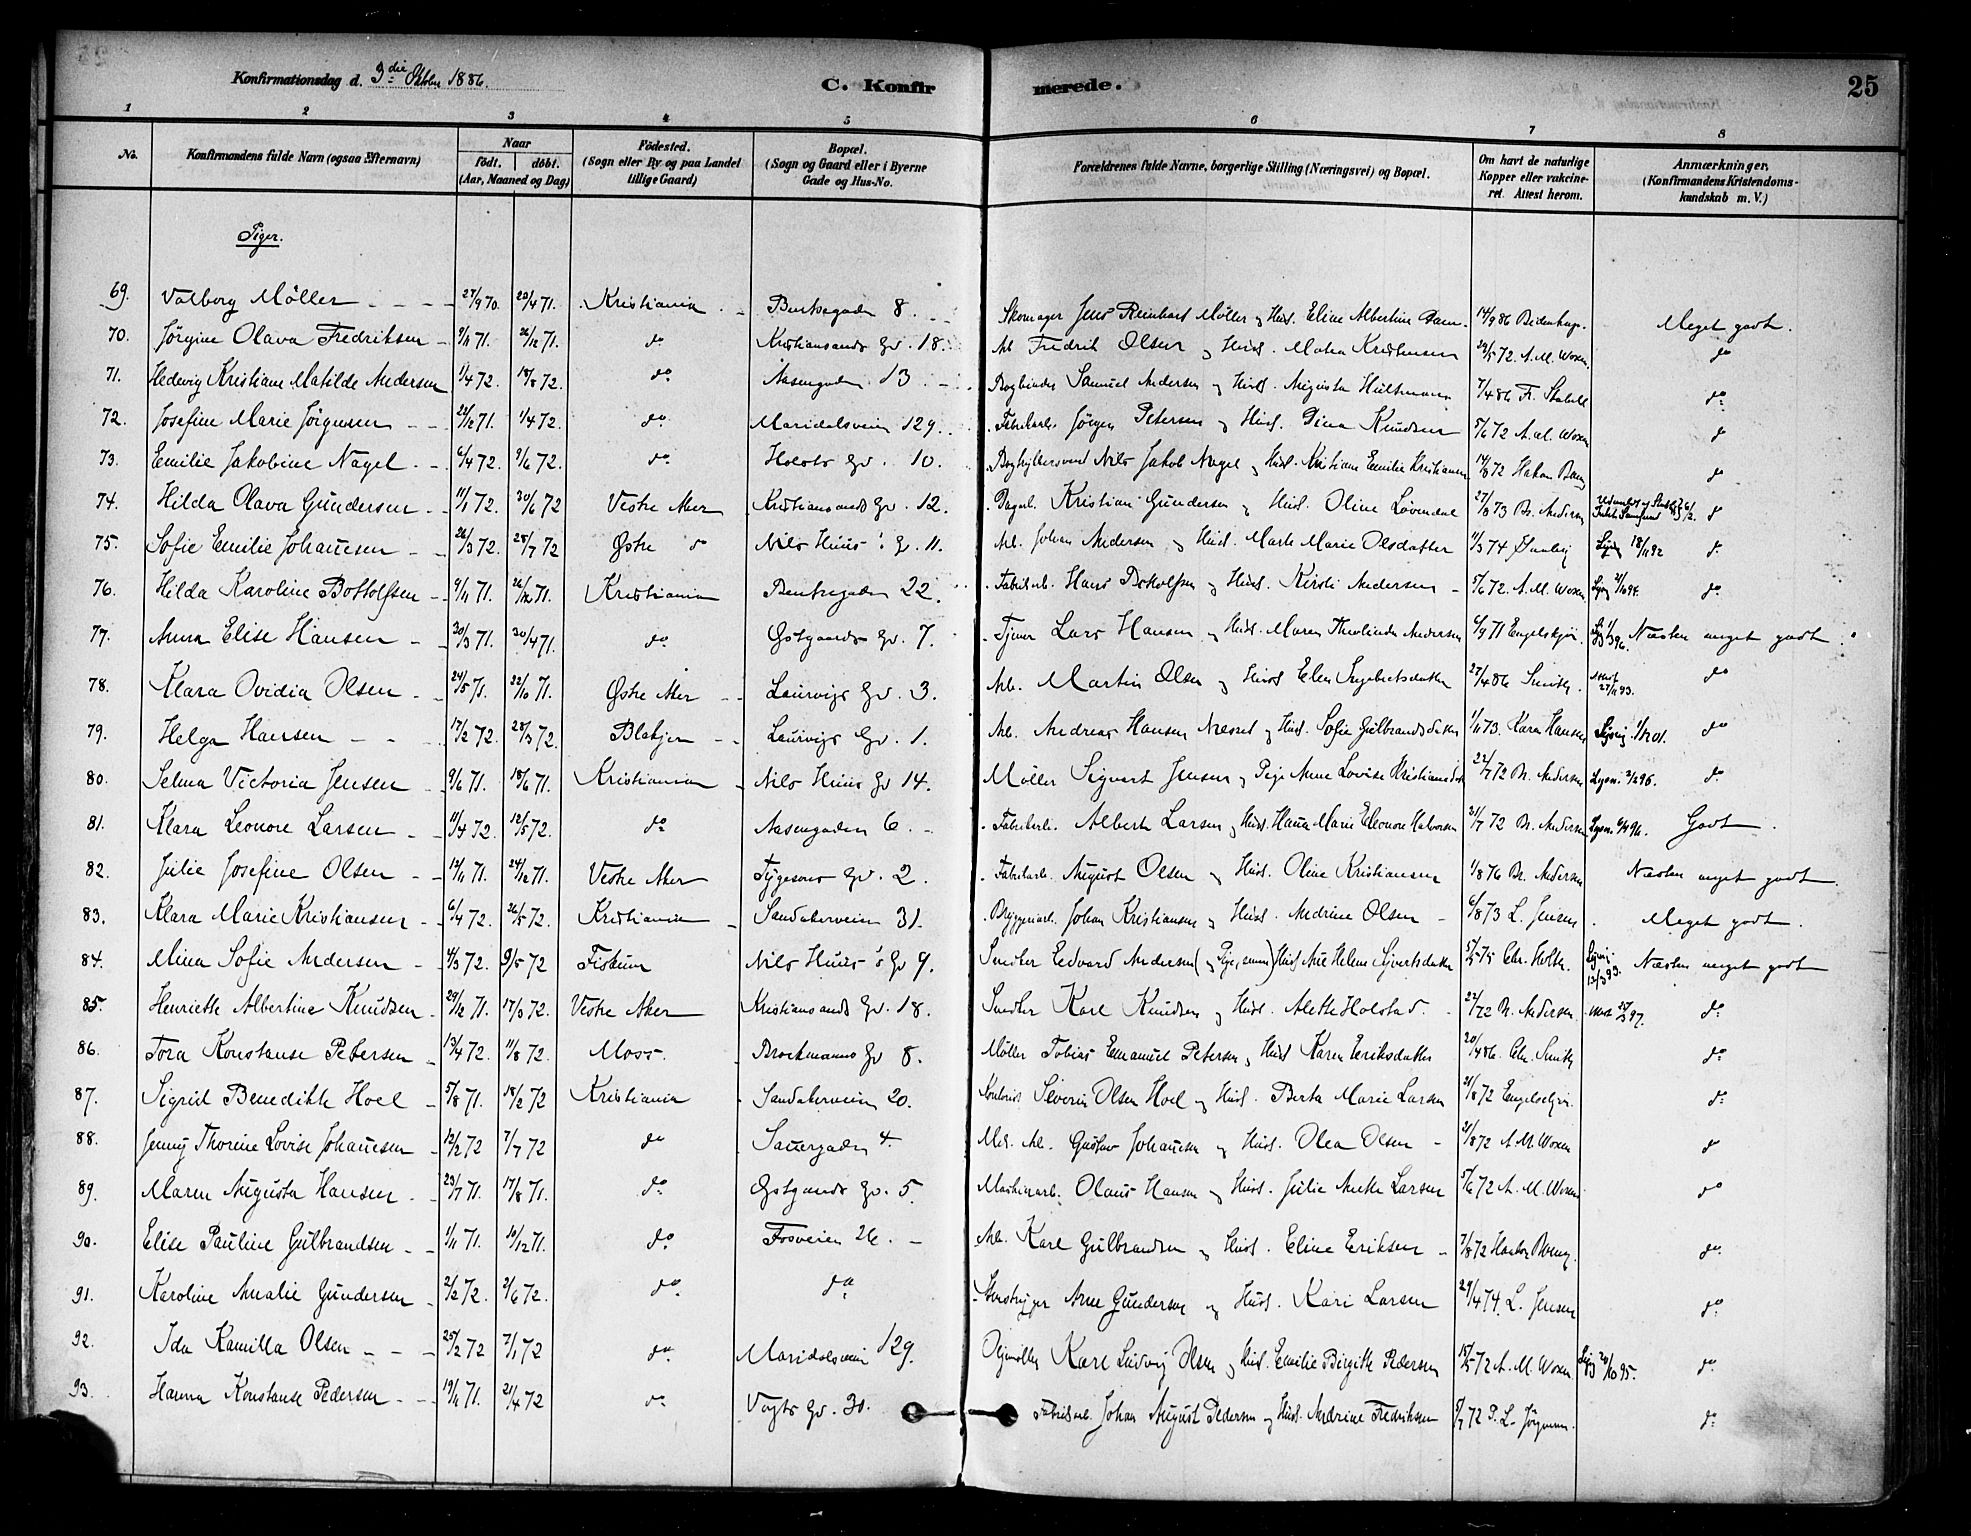 Konfirmationsdag d. 3die Oktober 1886.
C. Konfirmerede.
25
1 2 3 4 5 6 7 8
No. Konfirmandens fulde Navn (ogsaa Efternavn) Naar födt. döbt. (Aar, Maaned og Dag) Födested. (Sogn eller By og paa Landet tillige Gaard) Bopæl. (Sogn og Gaard eller i Byerne Gade og Hus-No. Forældrenes fulde Navne, borgerlige Stilling (Næringsvei) og Bopæl. Om havt de naturlige Kopper eller vakcineret. Attest herom. Anmærkninger, (Konfirmandens Kristendomskundskab m. V.)
Piger.
69. Valborg Möller 27/9 70. 20/4 71. Kristiania Bentsegaden 8. Skomager Jens Reinhart Möller og Hust. Eline Albertine Dam 14/9 86 Meget godt.
70. Jörgine Olava Fredriksen 9/11 71. 26/12 71. do Kristiansands Gd. 18. Arb. Fredrik Olsen og Hust. Maten Kristensen 29/5 72. A. M. Woxen do
71. Hedevig Kristiane Matilde Andersen 1/4 72. 18/8 72. do Aasengaden 13 Bogbinder Samuel Andersen og Hust. Augusta Hultmann 7/4 86 Fr. Stabell do
72. Josefine Marie Jörgensen 22/12 71. 1/4 72. do Maridalsveien 129. Fabrikarb. Jörgen Petersen og Hust. Dina Knudsen 5/6 72 A. M. Woxen do
73. Emilie Jakobine Nagel 6/4 72. 9/6 72. do Holsts Gd. 10. Nils Jakob Nagel og Hust. Kristiane Emilie Kristiansen 14/8 72 Hakon Bang do
74. Hilda Olava Gundersen 11/1 72. 30/6 72 Vestre Aker Kristiansands Gd. 12. Dagarb. Kristian Gundersen og Hust. Oline Lövendal 27/8 73 Br. Andersen do
75. Sofie Emilie Johannesen 26/3 72. 28/7 72 Østre do Nils Huus's G. 11. Arb. Johan Andersen og Hust. Marte Marie Olsdatter 11/3 74 18/11 92 do
76. Hilda Karoline Bottolfsen 9/11 71. 26/12 71. Kristiania Bentsegaden 22. Fabrikarb. Hans Bottolfsen og Hust. Kirsti Andersen 5/6 72. A. M. Woxen do
77. Anna Elise Hansen 30/3 71. 30/4 71. do Østgaards Gd. 7. Tjener Lars Hansen og Hust. Maren Theolinda Andersen 6/9 71 Engelskjön Næsten meget godt
78. Klara Ovidia Olsen 24/5 71. 22/10 71. Østre Aker Laurvigs Gd. 3. Arb. Martin Olsen og Hust. Elen Ingebretsdatter 27/4 86 Smith. 27/11 93. do
79. Helga Hansen 17/2 72. 28/3 72. Blakjer Laurvigs Gd. 1. Arb. Andreas Hansen Næsset og Hust. Sofie Gulbrandsdatter 1/11 73. Karen Hansen do
80. Selma Victoria Jensen 9/6 71. 18/6 71. Kristiania Nils Huus Gd 14. Möller Sigvart Jensen og Pige Anne Lovise Kristiansdatter 22/7 72 Br. Andersen do
81. Klara Leonore Larsen 11/4 72. 12/5 72. do Aasengaden 6. Fabrikarb. Albert Larsen og Hust. Hanna Marie Eleonore Halvorsen 31/7 72 Br. Andersen Godt.
82. Julie Josefine Olsen 12/11 71. 24/12 71. Vestre Aker Tygesons Gd. 2. Fabrikarb. August Olsen og Hust. Oline Kristiansen 1/8 76 Br. Andersen Næsten meget godt.
83. Klara Marie Kristiansen 6/4 72. 26/5 72. Kristiania Sandakerveien 31. Bryggeriarb. Johan Kristiansen og Hust. Andrine Olsen 6/8 73 L. Jensen Meget godt.
84. Mina Sofie Andersen 4/3 72. 9/5 72 Fiskum Nils Huus's Gd 9. Snedker Edvard Andersen (og Pige, ) Hust. Ane Helene Sivertsdatter 5/5 75 Chr. Holth. 12/3 93. Næsten meget godt
85. Henriette Albertine Knudsen 29/12 71. 17/3 72. Vestre Aker Kristiansands Gd. 18. Snedker Karl Knudsen og Hust. Alette Holstad. Br. Andersen. do
86. Tora Konstanse Petersen 13/4 72. 11/8 72. Moss. Brockmanns Gd 8. Möller Tobias Emanuel Petersen og Hust. Karen Eriksdatter 20/4 86. Chr. Smith do
87. Sigrid Benedikte Hoel 5/8 71. 18/2 72 Kristiania Sandakerveien 20. Kontorist Severin Olsen Hoel og Hust. Berta Marie Larsen 21/8 72 Engelskjön. do
88. Jenny Thorine Lovise Johannesen 12/2 72 7/7 72 do Sannergaden 4. Mek. Arb. Gustav Johannesen og Hust. Olea Olsen 21/8 72 A. M. Woxen do
89. Maren Augusta Hansen 23/7 71. 17/8 71. do Østgaards Gd. 5. Maskinarb. Olaus Hansen og Hust. Julie Anette Larsen 5/6 72 A. M. Woxen do
90. Elise Pauline Gulbrandsen 1/11 71. 10/12 71. do Fosveien 26. Arb. Karl Gulbrandsen og Hust. Eline Eriksen 7/8 72 do
91. Karoline Amalie Gundersen 2/2 72. 2/6 72. do do Arne Gundersen og Hust. Kari Larsen 29/4 74. L. Jensen do
92. Ida Kamilla Olsen 25/2 72 7/1 72 do Maridalsveien 129. Karl Ludvig Olsen og Hust. Emilie Birgitte Pedersen 15/5 72 A. M. Woxen 20/10 95. do
93. Hanna Konstanse Pedersen 19/11 71. 21/4 72 do Vogts Gd. 30. Fabrikarb. Johan August Pedersen og Hust. Andrine Fredriksen 8/7 72 P. L. Jörgensen. do